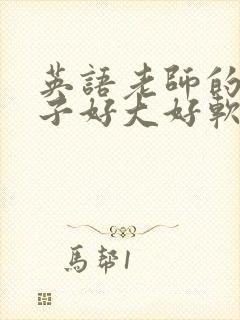 英語老師的
子好大好軟
馬幫1